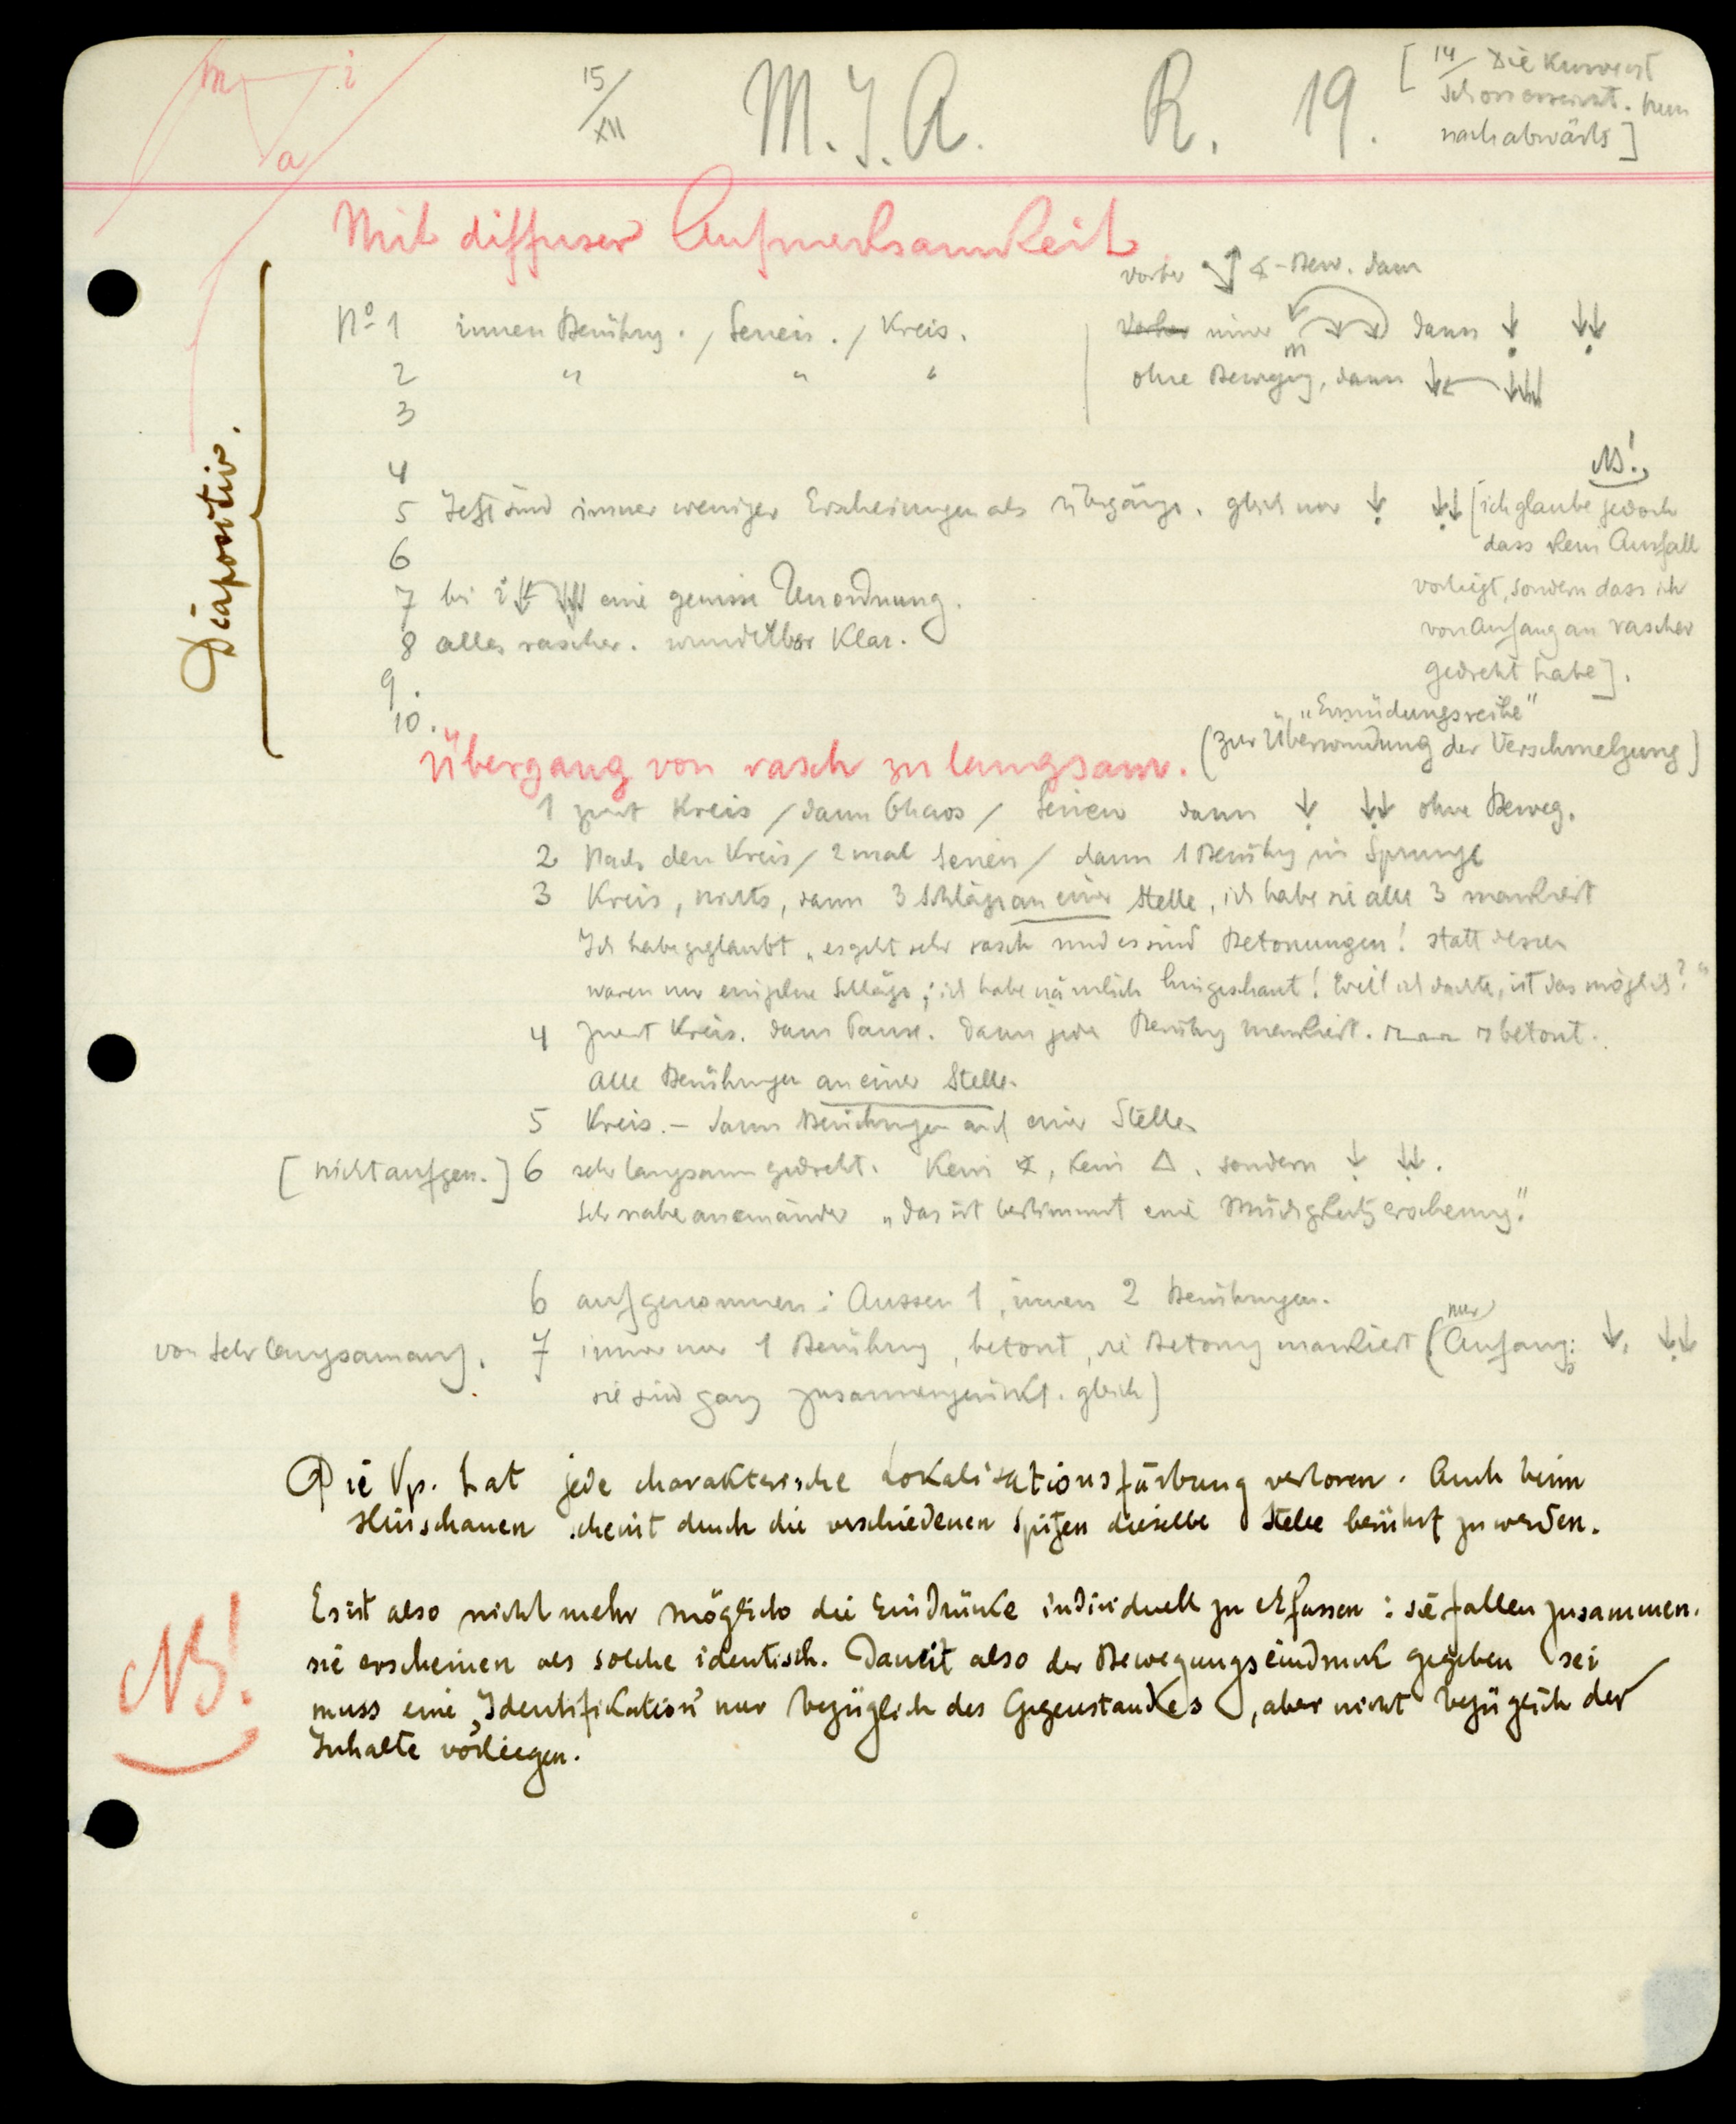 m i
a
15/XII M. I. A. R. 19.
[ 14/ Die Kurve ist
schon erreicht. nun
nach abwärts ]
Mit diffuser Aufmerksamkeit
Diapositiv.
vorher ∢-Bew. dann
No 1 innen Berührg. / Serien. / Kreis. dann ↓ ↓↓
2 " " " ohne Bewegung, dann ↓
3
4
NB!
5 Jetzt sind immer weniger Erscheinungen als Übergänge. gleich nur ↓ ↓↓ [ich glaube jedoch
dass kein Ausfall
6
vorliegt, sondern dass ich
7 bei i eine gewisse Unordnung.
von Anfang an rascher
8 alles rascher. wunderbar klar.
gedreht habe].
9.
10.
„Ermüdungsreihe"
(zur Überwindung der Verschmelzung)
Übergang von rasch zu langsam.
1 zuerst Kreis / dann Chaos / Serien dann ↓ ↓↓ ohne Beweg.
2 Nach den Kreis / 2 mal Serien / dann 1 Berührg im Sprunge
3 Kreis, nichts, dann 3 Schläge an einer Stelle, ich habe sie alle 3 markiert
Ich habe geglaubt „es geht sehr rasch und es sind Betonungen! statt dessen
waren nur einzelne Schläge; ich habe nämlich hingeschaut! weil ich dachte, ist das möglich?"
4 zuerst Kreis. dann Pause. dann jede Berührg markiert. betont.
Alle Berührungen an einer Stelle.
5 Kreis. – dann Berührungen auf einer Stelle
[nicht aufgen.] 6 sehr langsam gedreht. Kein ∢, kein Δ, sondern ↓ ↓↓.
sehr nahe aneinander „das ist bestimmt eine Müdigkeitserscheinung."
6 aufgenommen: Aussen 1, innen 2 Berührungen.
von sehr langsam auf. 7 immer nur 1 Berührung, betont, die Betonung markiert (nur Anfang: ↓, ↓↓
sie sind ganz zusammengerückt. gleich)
Die Vp. hat jede charakterische Lokalisationsfärbung verloren. Auch beim
Hinschauen scheint durch die verschiedenen Spitzen dieselbe Stelle berührt zu werden.
NB!
Es ist also nicht mehr möglich die Eindrücke individuell zu erfassen: sie fallen zusammen.
sie erscheinen als solche identisch. Damit also der Bewegungseindruck gegeben sei
muss eine „Identifikation" nur bezüglich des Gegenstandes, aber nicht bezüglich der
Inhalte vorliegen.